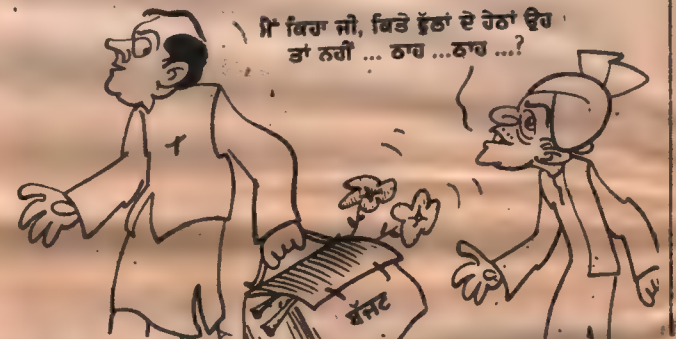 ਮੈਂ ਕਿਹਾ ਜੀ, ਕਿਤੇ ਫੁੱਲਾਂ ਦੇ ਹੇਠਾਂ ਉਹ
ਤਾਂ ਨਹੀਂ ... ਠਾਹ ...ਠਾਹ ...?
ਬੱਜਟ